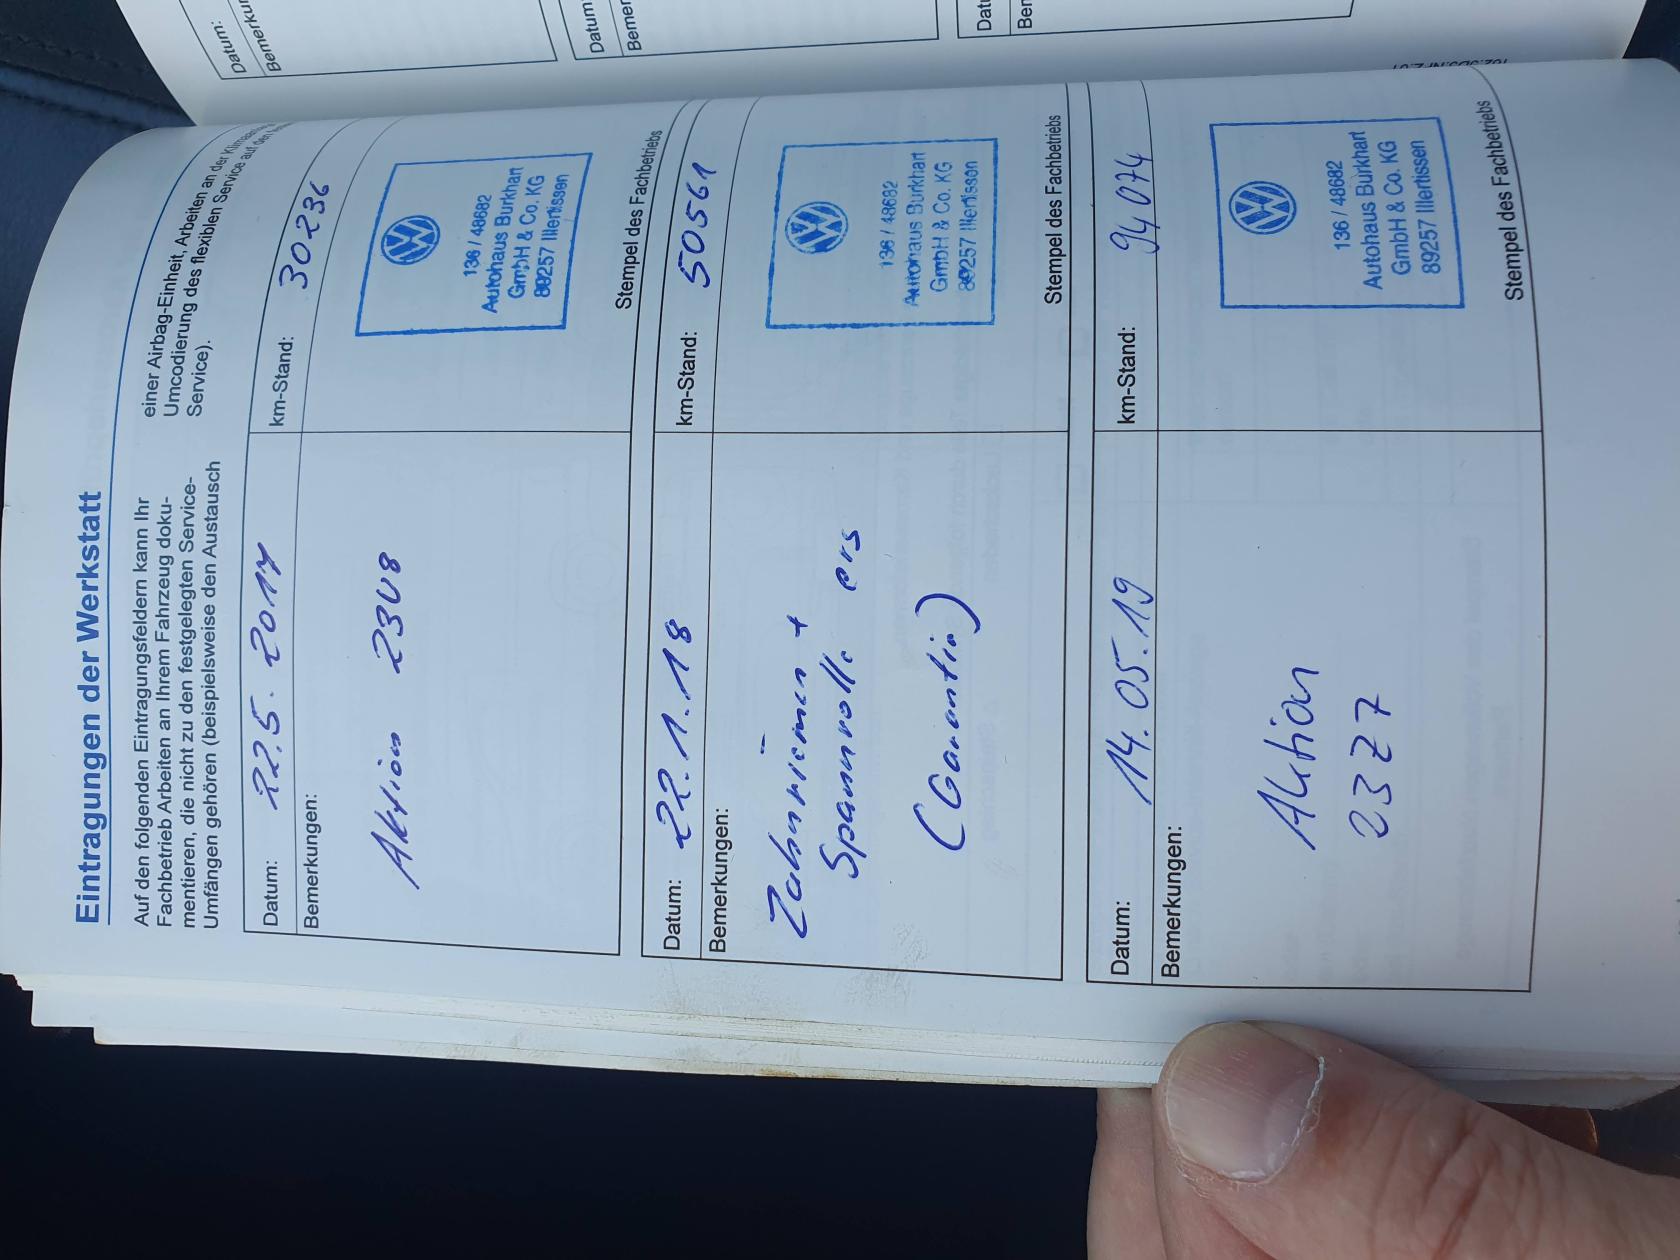 Datum:
Datum:
Eintragungen der Werkstatt
Auf den folgenden Eintragungsfeldern kann Ihr
Fachbetrieb Arbeiten an Ihrem Fahrzeug doku-
mentieren, die nicht zu den festgelegten Service-
Umfängen gehören (beispielsweise den Austausch
einer Airbag-Einheit, Arbeiten an der
Umcodierung des flexiblen Service auf den
Service).
Datum: 22.5.2017
km-Stand: 30236
Bemerkungen:
Aktion 23U8
136 / 48682
Autohaus Burkhart
GmbH & Co. KG
89257 Illertissen
Stempel des Fachbetriebs
Datum: 22.1.18
km-Stand: 50561
Bemerkungen:
Zahnriemen +
Spannrolle ers
(Garantie)
136 / 48682
Autohaus Burkhart
GmbH & Co. KG
89257 Illertissen
Stempel des Fachbetriebs
Datum: 14.05.19
km-Stand: 94074
Bemerkungen:
Aktion
23Z7
136 / 48682
Autohaus Burkhart
GmbH & Co. KG
89257 Illertissen
Stempel des Fachbetriebs